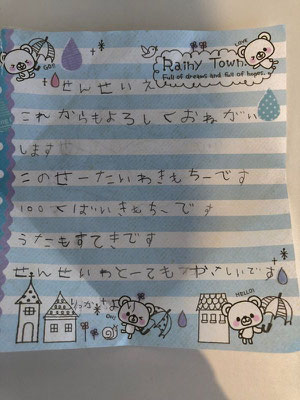 GO!!
LOVE
Rainy Town.
Full of dreams and full of hopes.
せんせいえ
これからもよろしくおねがい
します
このせーたいわきもちーです
100くばいきもちーです
うたもすてきです
せんせいわとーてもやさしいです
より
OH!
HELLO!